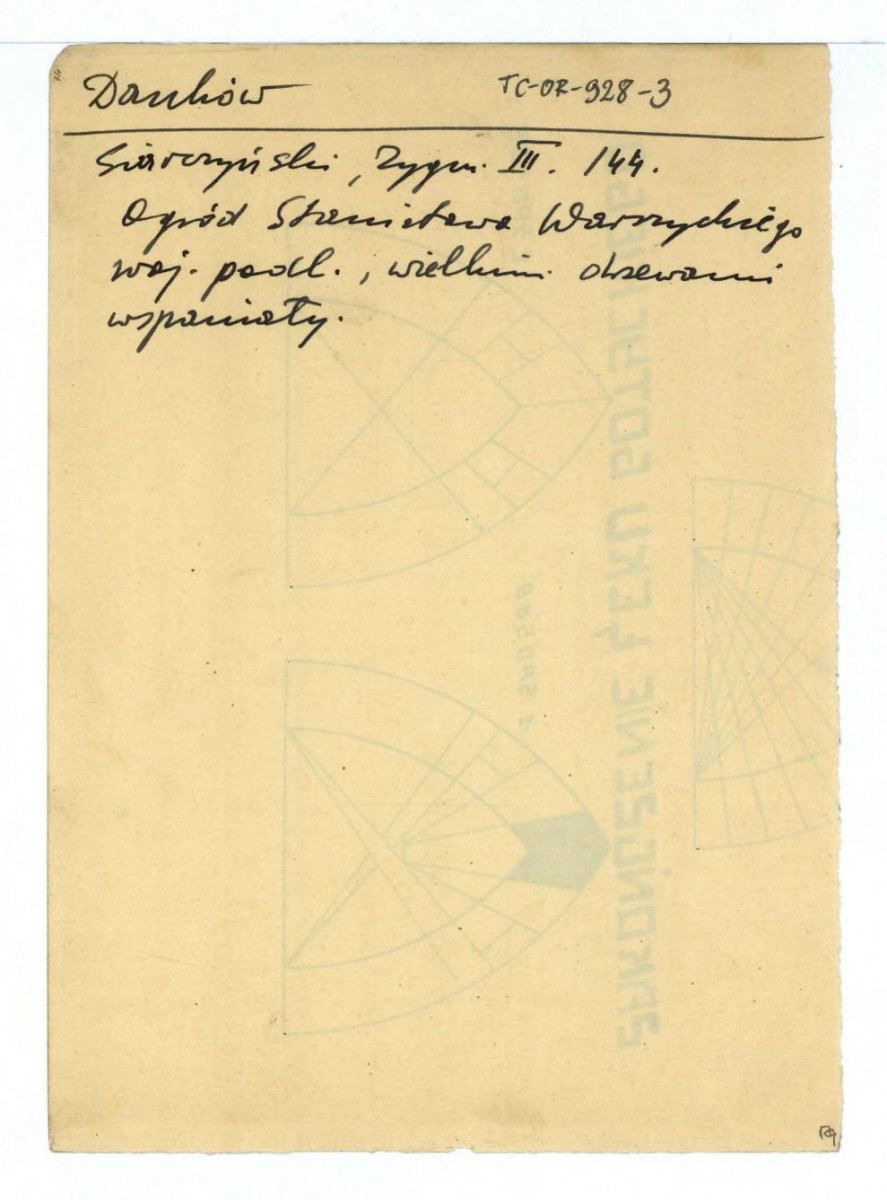 Danków TC-OR-928-3
Siarczyński, Zygm. III. 144.
Ogród Stanisława Warszyckiego
woj. podl., wielkim. drzewami
wspaniały.
ZAKOŃCZENIE ŁĘKU GOTYCKIEGO
SPOSÓB